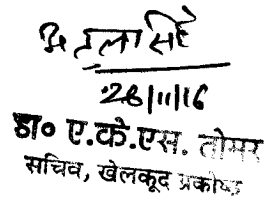 28/11/16
डा० ए.के.एस. तोमर
सचिव, खेलकूद प्रकोष्ठ